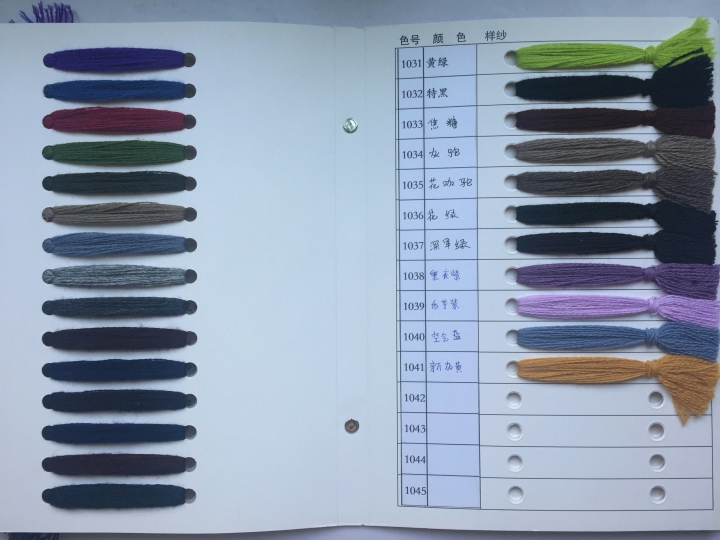 色号 颜 色 样纱
1031 黄绿
1032 特黑
1033 焦 糖
1034 灰 驼
1035 花咖驼
1036 花 绿
1037 深军绿
1038
1039
1040
1041
1042
1043
1044
1045